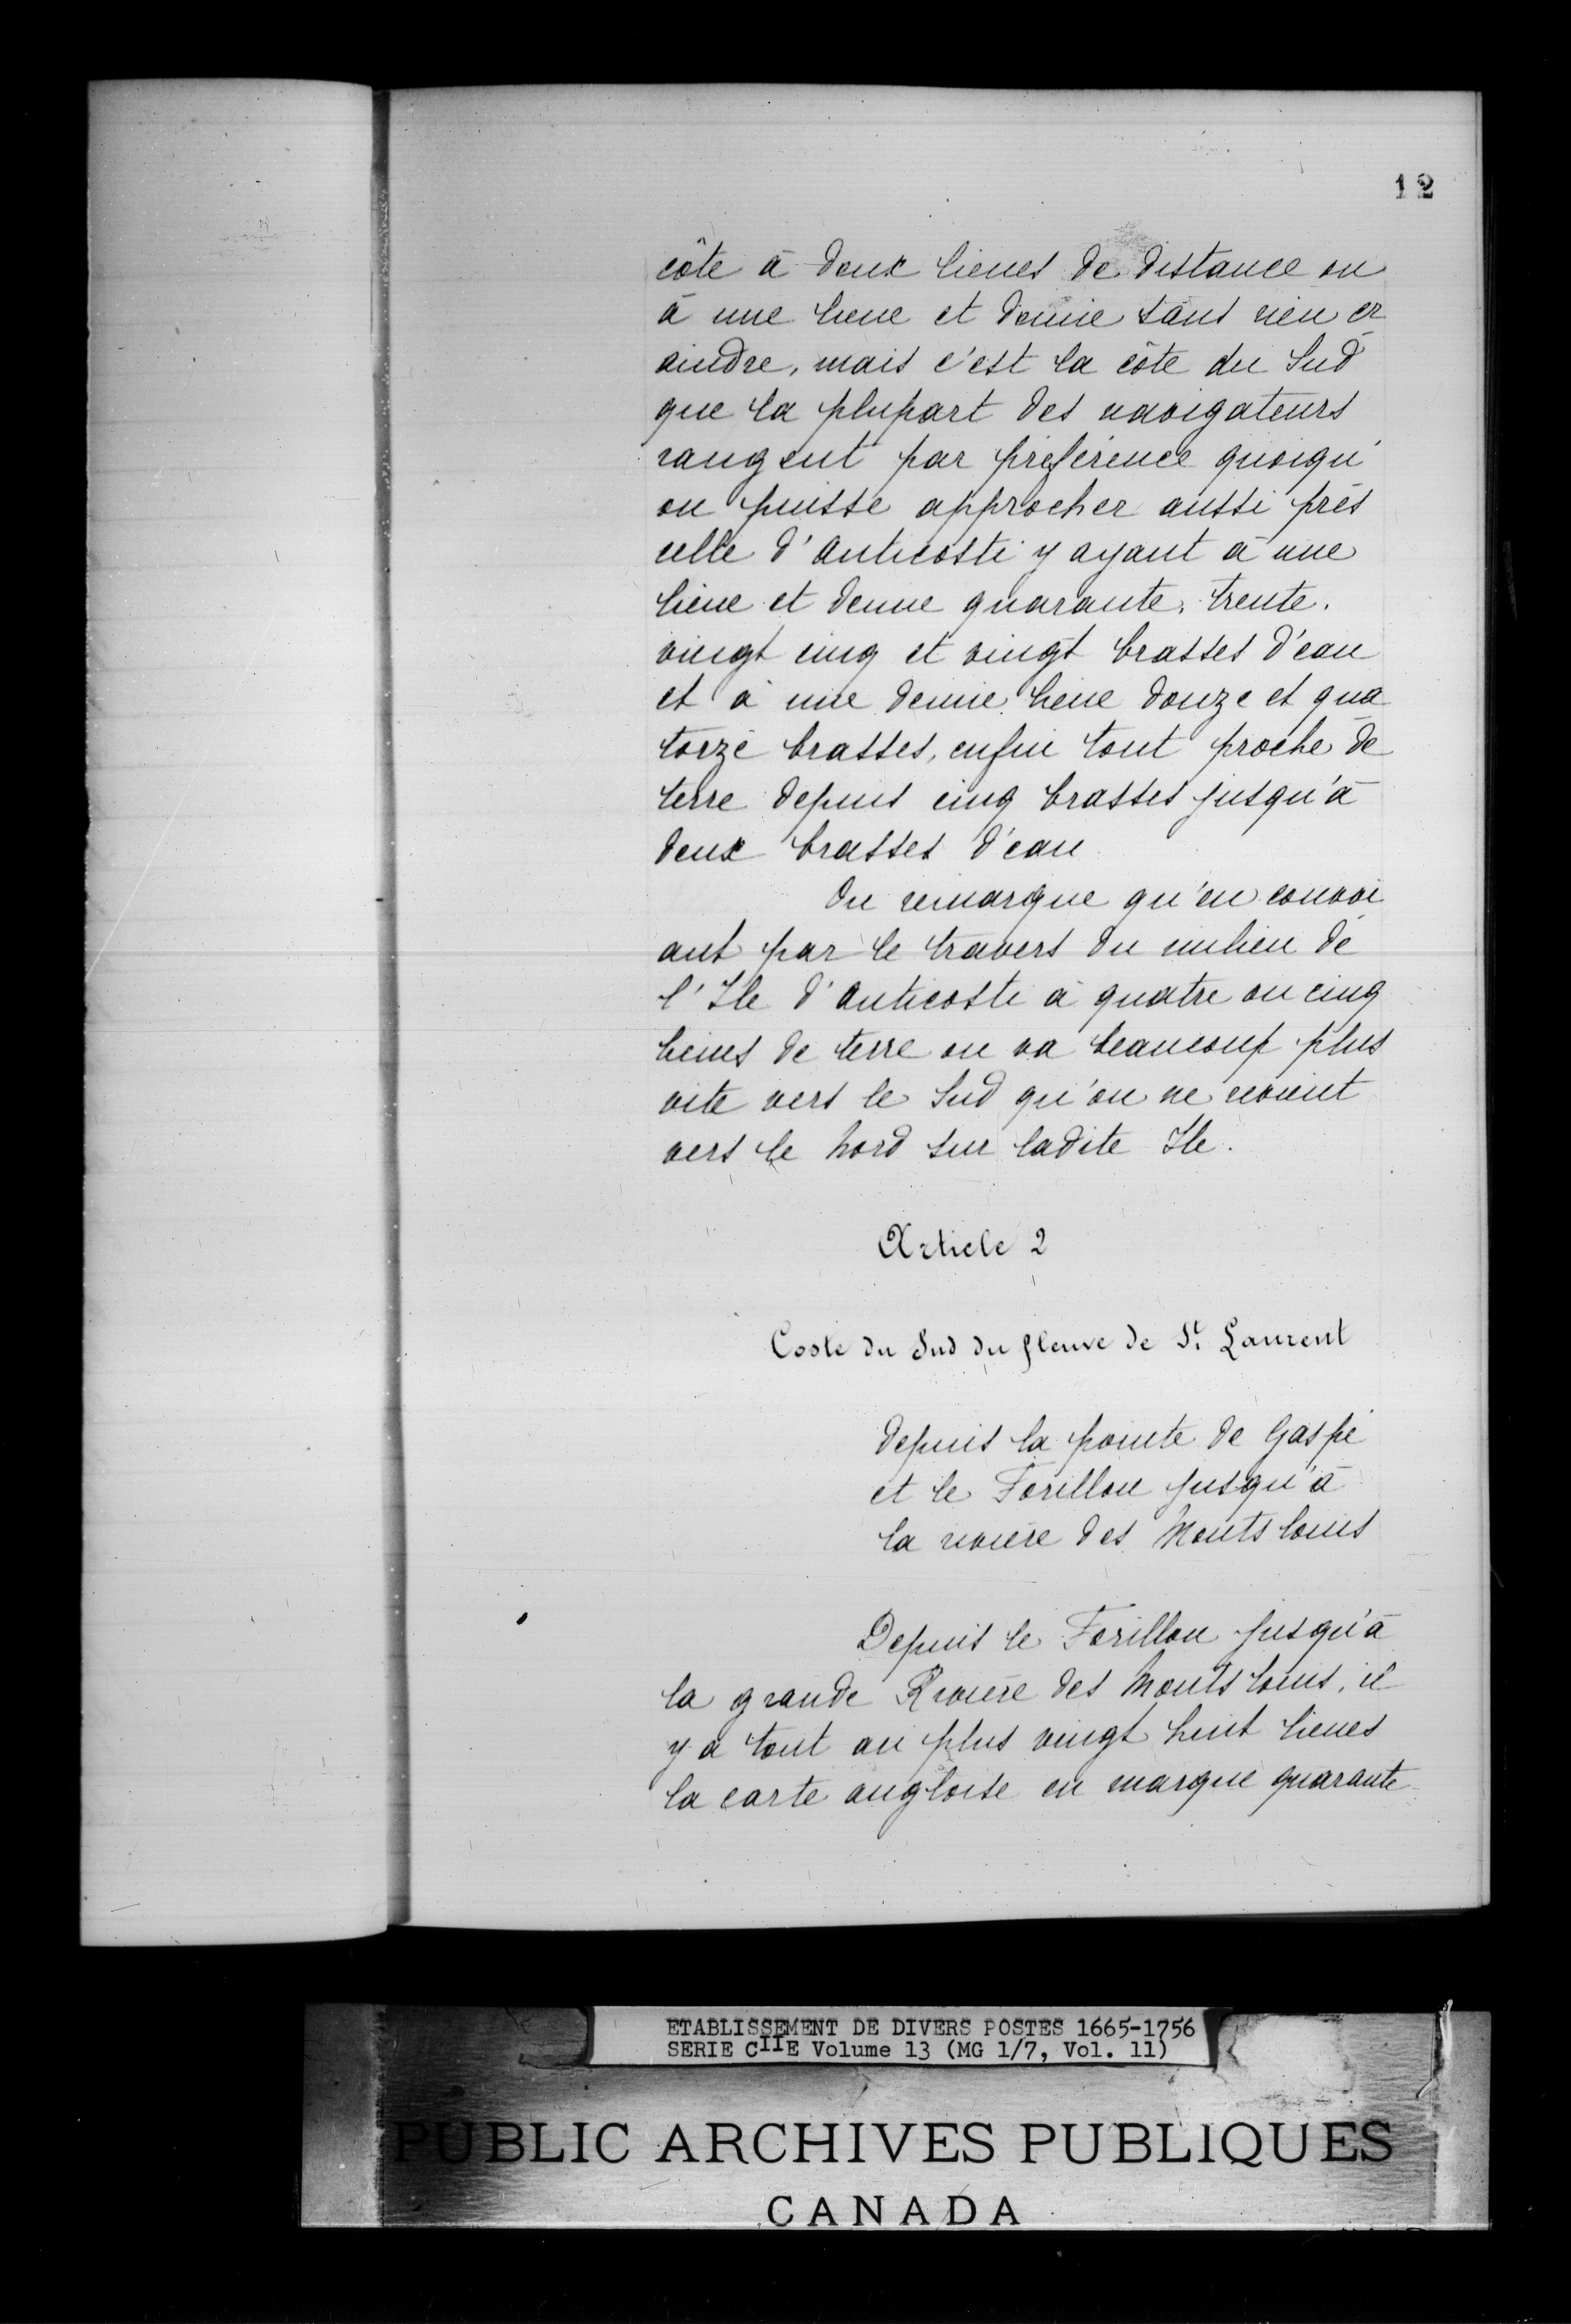 12
côte à deux lieues de distance ou
à une lieue et demie sans rien cr
aindre, mais c'est la côte du Sud
que la plupart des navigateurs
rangent par préférence quoiqu'
on puisse approcher aussi près
celle d'Anticosti y ayant à une
lieue et demie quarante, trente,
vingt cinq et vingt brasses d'eau
et à une demie lieue douze et qua
torze brasses, enfin tout proche de
terre depuis cinq brasses jusqu'à
deux brasses d'eau
On remarque qu'en
ant par le travers du milieu de
l'Ile d'Anticosti à quatre ou cinq
lieues de terre on va beaucoup plus
vite vers le Sud qu'on ne revient
vers le Nord sur ladite Ile.
Article 2
Coste du Sud du fleuve de St. Laurent
depuis la pointe de Gaspé
et le Forillon jusqu'à
la rivière des Monts Louis
Depuis le Forillon jusqu'à
la grande Rivière des Monts Louis, il
y a tout au plus vingt huit lieues
la carte angloise en marque quarante
ETABLISSEMENT DE DIVERS POSTES 1665-1756
SERIE CIIE Volume 13 (MG 1/7, Vol. 11)
PUBLIC ARCHIVES PUBLIQUES
CANADA